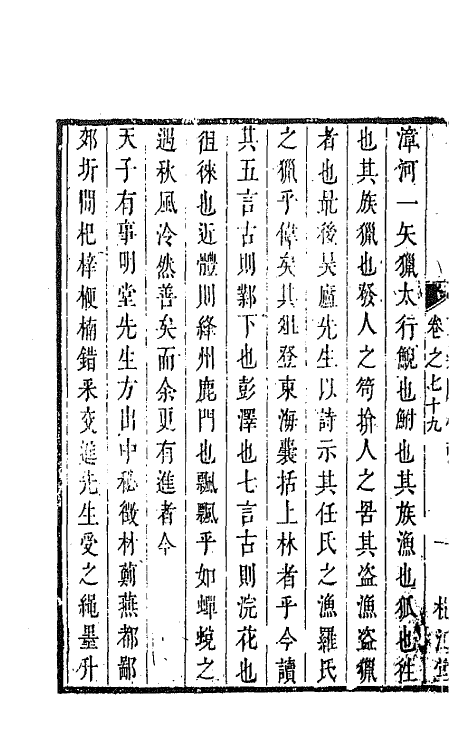 漳河一矢獵太行鯢也鮒也其族漁也狐也狌
也其族獵也發人之笱揜人之罟其盗漁盗獵
者也最後吴廬先生以詩示其任氏之漁羅氏
之獵乎偉矣其狙登東海囊括上林者乎今讀
其五言古則鄴下也彭澤也七言古則浣花也
徂徠也近體則絳州鹿門也飄飄乎如蟬蛻之
遇秋風泠然善矣而余更有進者今
天子有事明堂先生方出中秘徵材薊燕都鄙
郊圻間杞梓楩楠錯釆交進先生受之繩墨升
卷之七十九
一